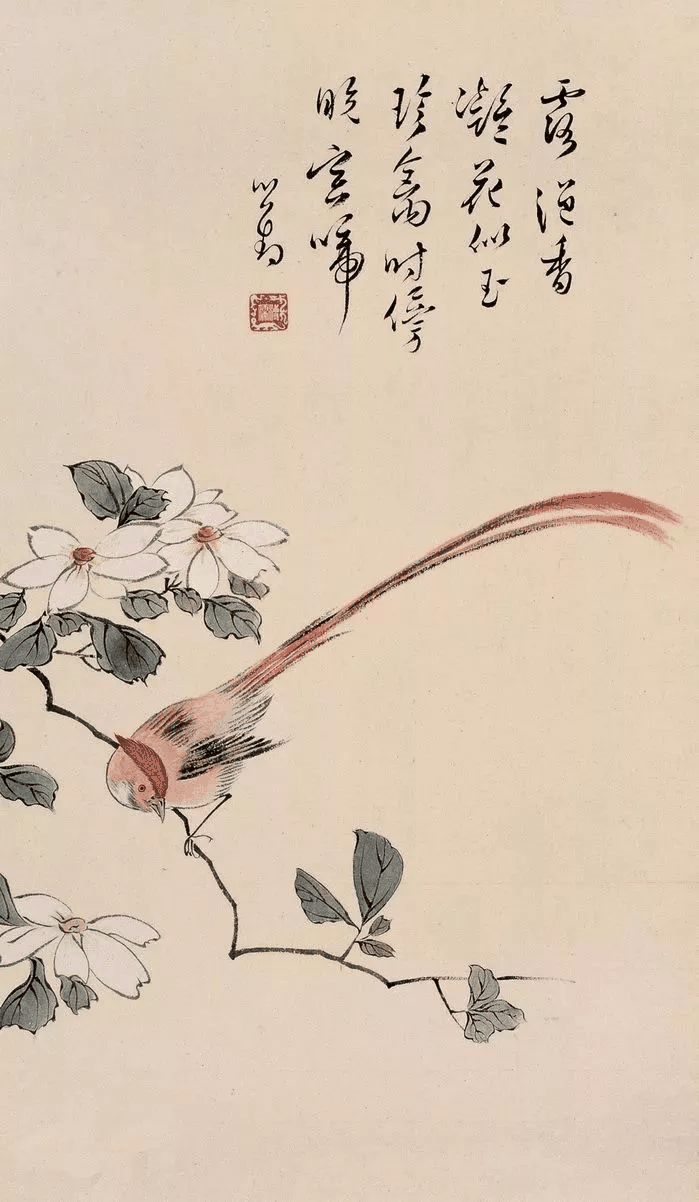 露浥香
凝花似玉
珍禽时傍
晚窗啼
心畬